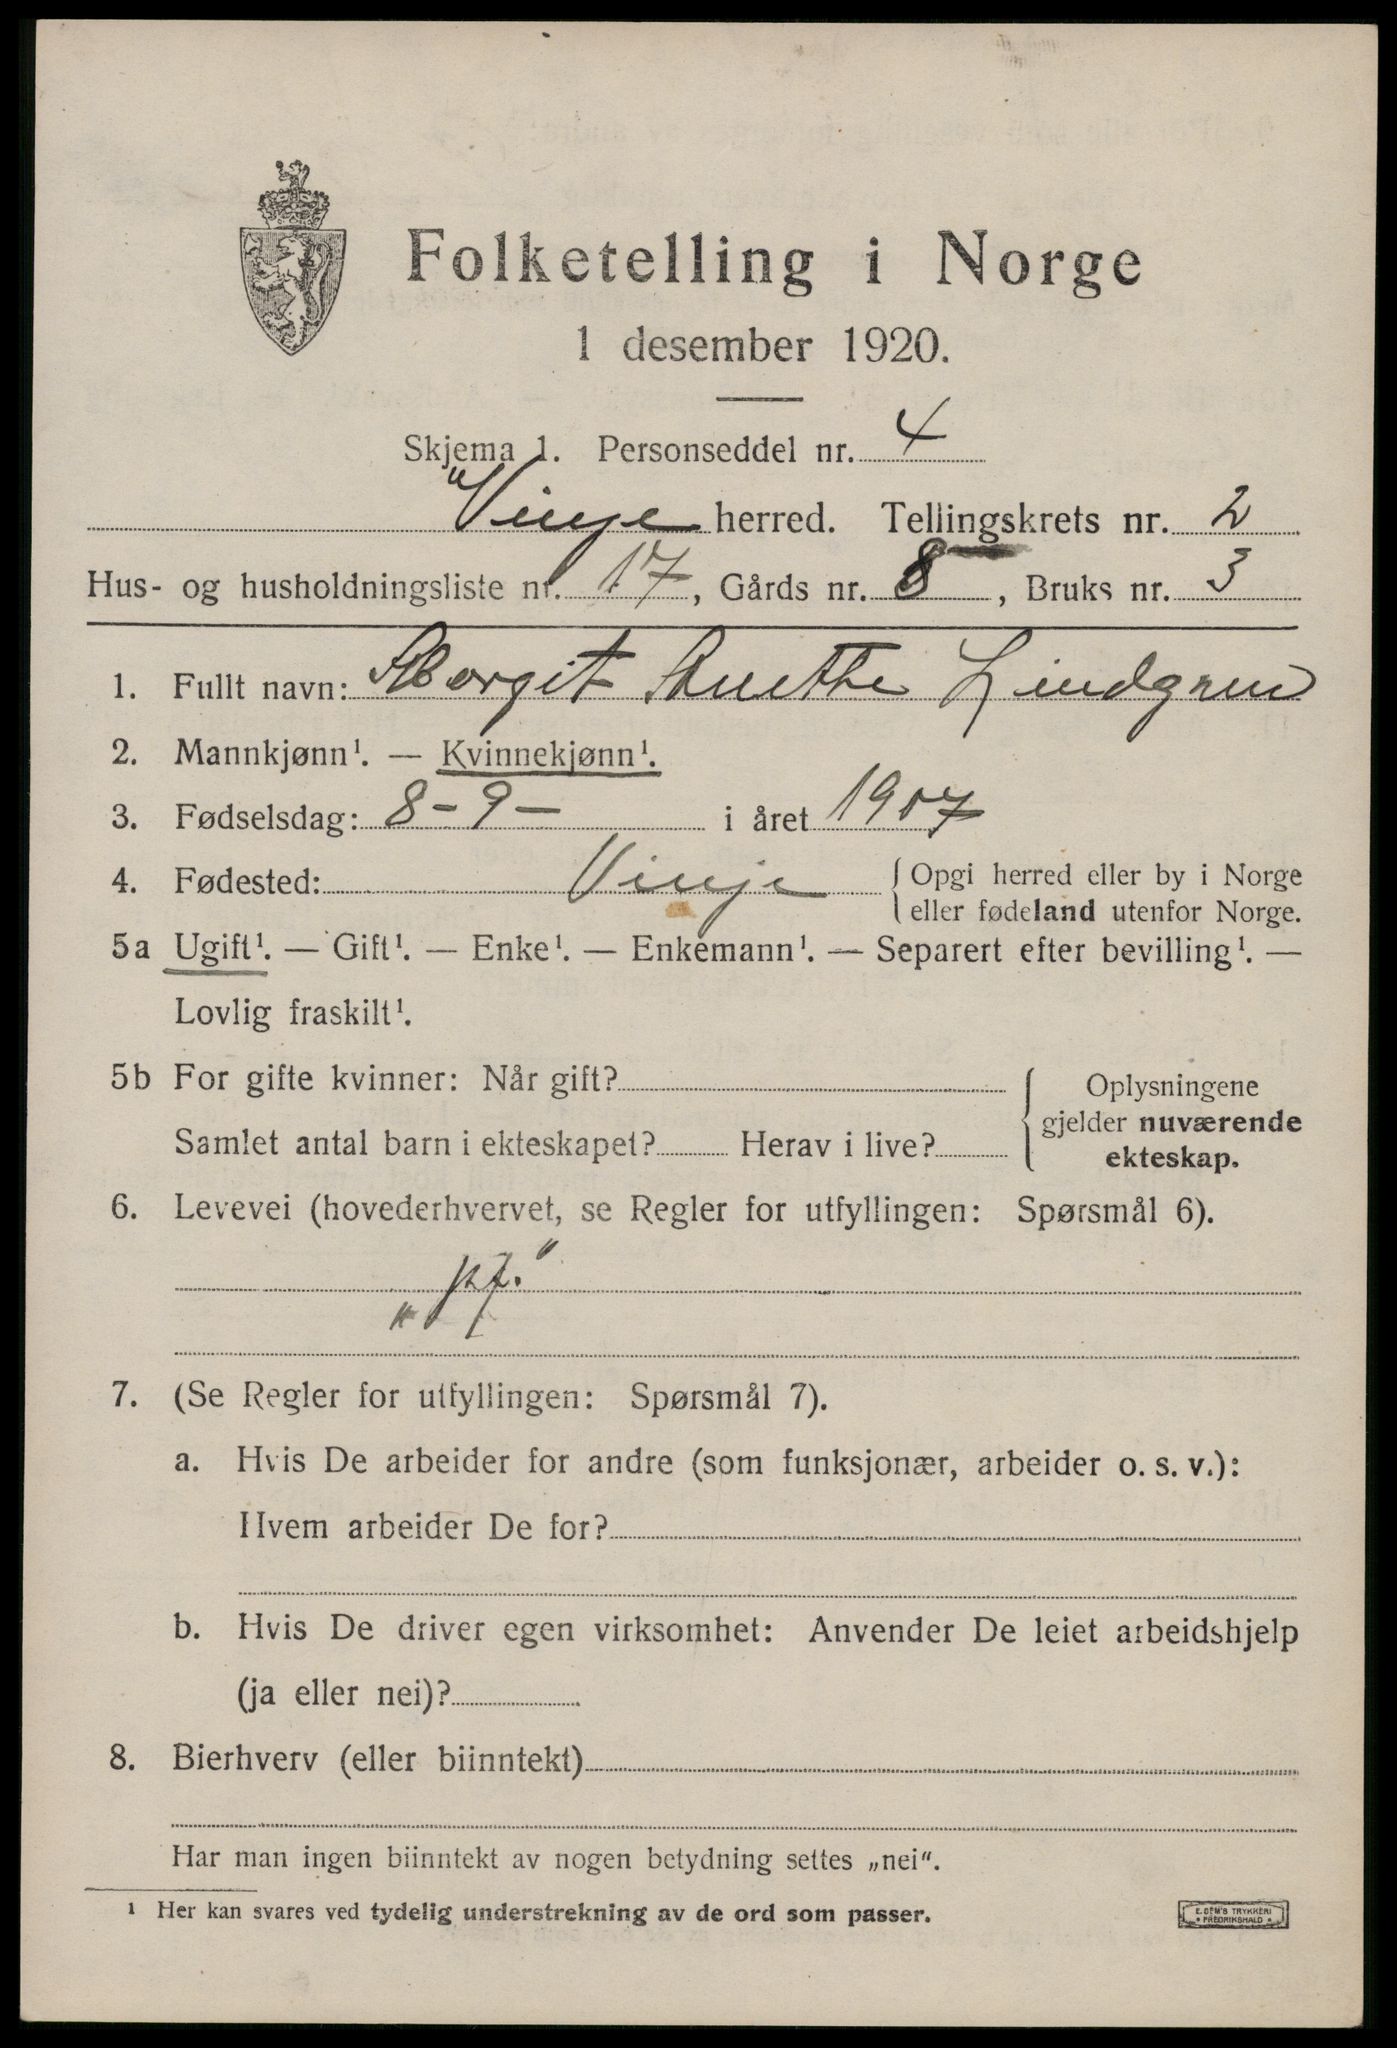 Folketelling i Norge
1 desember 1920.
Skjema 1. Personseddel nr. 4
Vinje herred. Tellingskrets nr. 2
Hus- og husholdningsliste nr. 17, Gårds nr. 8, Bruks nr. 3
1. Fullt navn: Margit Anethe Lindgren
2. Mannkjønn¹. — Kvinnekjønn¹.
3. Fødselsdag: 8-9- i året 1907
4. Fødested: Vinje { Opgi herred eller by i Norge
eller fødeland utenfor Norge.
5a Ugift¹. — Gift¹. — Enke¹. — Enkemann¹. — Separert efter bevilling¹. —
Lovlig fraskilt¹.
5b For gifte kvinner: Når gift? { Oplysningene
gjelder nuværende
Samlet antal barn i ekteskapet? Herav i live? ekteskap.
6. Levevei (hovederhvervet, se Regler for utfyllingen: Spørsmål 6).
„pf."
7. (Se Regler for utfyllingen: Spørsmål 7).
a. Hvis De arbeider for andre (som funksjonær, arbeider o. s. v.):
Hvem arbeider De for?
b. Hvis De driver egen virksomhet: Anvender De leiet arbeidshjelp
(ja eller nei)?
8. Bierhverv (eller biinntekt)
Har man ingen biinntekt av nogen betydning settes „nei".
¹ Her kan svares ved tydelig understrekning av de ord som passer.
E. SEM'S TRYKKERI
• FREDRIKSHALD •